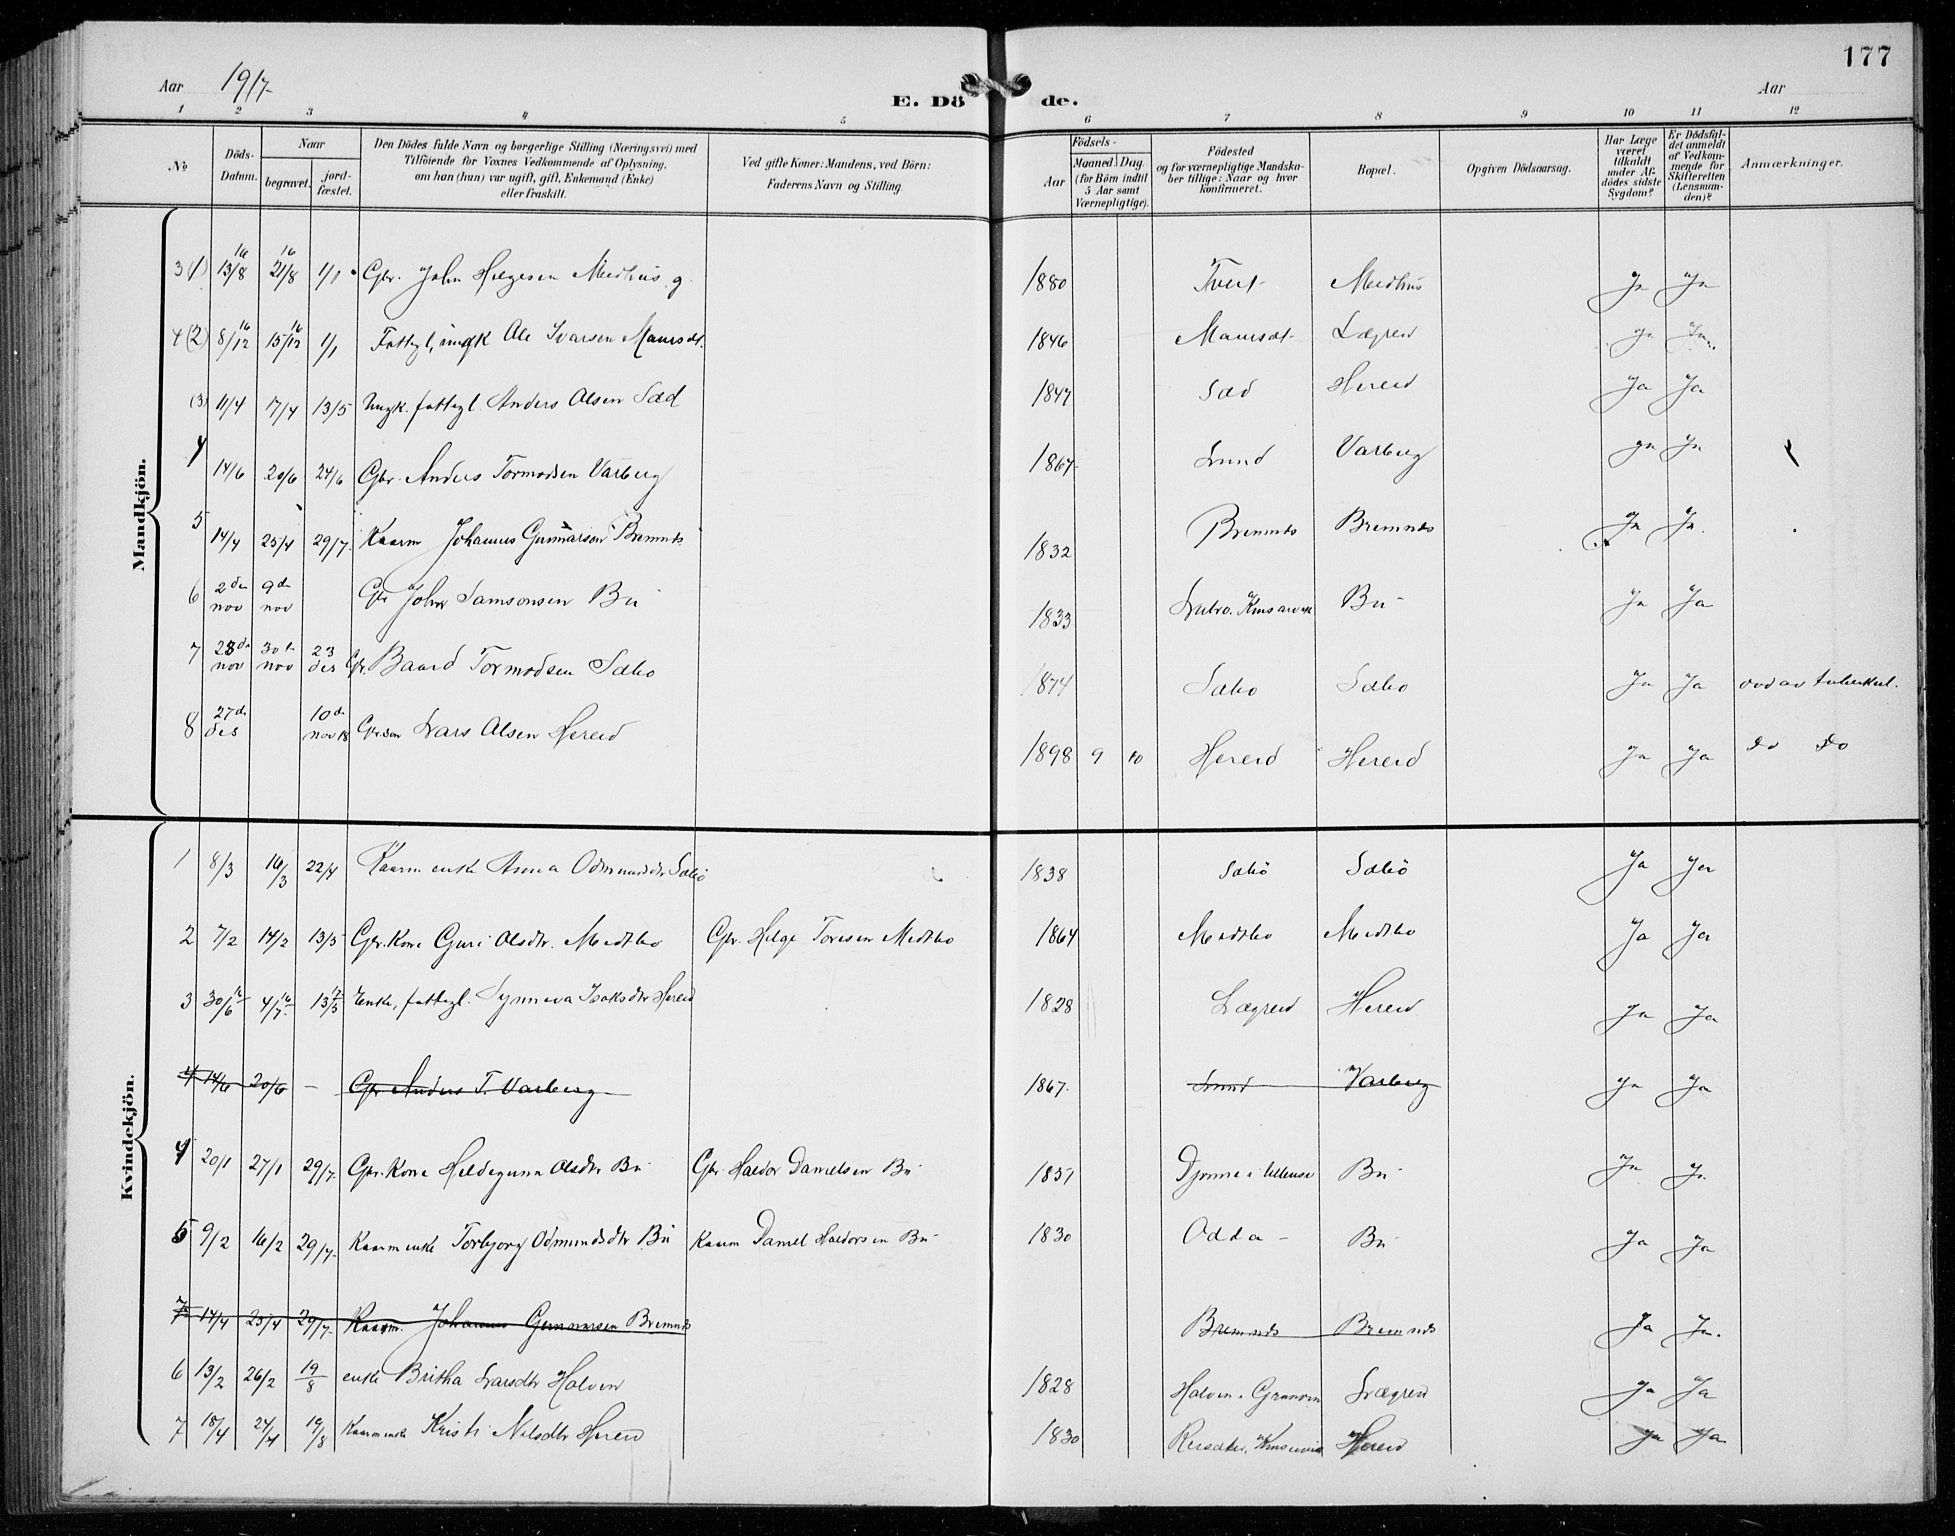 177
Aar 1917 Aar
E. Dö de.
1 2 3 4 5 6 7 8 9 10 11 12
No
Döds-Datum.
Naar
begravet.
jord-fæstet.
Den Dödes fulde Navn og borgerlige Stilling (Næringsvei) med
Tilföiende for Voxnes Vedkommende af Oplysning,
om han (hun) var ugift, gift, Enkemand (Enke)
eller fraskilt.
Ved gifte Koner: Mandens, ved Börn:
Faderens Navn og Stilling.
Födsels-
Aar
Maaned Dag.
(for Börn indtil
5 Aar samt
Værnepligtige).
Födested
og for værnepligtige Mandska-
ber tillige: Naar og hvor
konfirmeret.
Bopæl.
Opgiven Dödsaarsag.
Har Læge
været
tilkaldt
under Af-
dödes sidste
Sygdom?
Er Dödsfal-
det anmeldt
af Vedkom-
mende for
Skifteretten
(Lensman-
den)?
Anmærkninger.
Mandkjön.
3 (1) 13/8 16 21/8 16 1/1 Gbr. John Helgesen Medhus g. 1880 Tveit Medhus Ja Ja
4 (2) 8/12 16 15/12 16 1/1 Fattigl, ungk Ole Ivarsen Maursæt. 1846 Maursæt Lægreid Ja Ja
(3) 11/4 17/4 13/5 Ungk. fattigl. Anders Olsen Sæd 1847 Sæd Hereid Ja Ja
4 14/6 20/6 24/6 Gbr. Anders Tormodsen Varberg 1867 Lund Varberg Ja Ja
5 14/4 25/4 29/7 Kaarm Johannes Gunnarson Bremnes 1832 Bremnes Bremnes Ja Ja.
6 2den nov 9de nov Gbr John Samsonsen Bu 1833 Lutro. Kinsarvik Bu Ja Ja
7 23de nov 30te nov 23 des Gbr. Baard Tormodsen Sæbo 1874 Sæbo Sæbo Ja Ja død av tuberkul.
8 27de des 10de nov 18 Gbr.søn Lars Olsen Hereid 1898 9 10 Hereid Hereid Ja Ja Do Do
Kvindekjön.
1 8/3 16/3 22/4 Kaarm enke Anna Odmundsdtr Sæbö 1838 Sæbö Sæbö Ja Ja
2 7/2 14/2 13/5 Gbr. Kone Guri Olsdtr. Medtbo Gbr. Helge Toresen Medtbo 1864 Medtbo Medtbo Ja Ja
3 30/6 16 4/7 16 13/5 17 Enke, fattigl. Synneva Isaksdtr Hereid 1828 Lægreid Hereid Ja Ja
4 14/6 20/6 – Gbr Anders T. Varberg 1867. Lund Varberg Ja Ja
4 20/1 27/1 29/7 Gbr. Kone Hildegunn Olsdtr Bu Gbr. Haldor Danielsen Bu 1851 Djønne i Ullensv Bu Ja Ja
5 9/2 16/2 29/7 Kaarm enke Torbjorg Odmundsdtr Bu Kaarm Daniel Haldorsen Bu 1830 Odda Bu Ja Ja
7 14/4 25/4 29/7 Kaarm. Johannes Gunnarsen Bremnes Bremnes Bremnes Ja Ja.
6 13/2 26/2 19/8 enke Britha Larsdtr Holven 1828 Holven i Granvin Lægreid Ja Ja
7 18/4 24/4 19/8 Kaarmenke Kristi Nilsdtr Hereid 1830 Kinsarvik Hereid Ja Ja